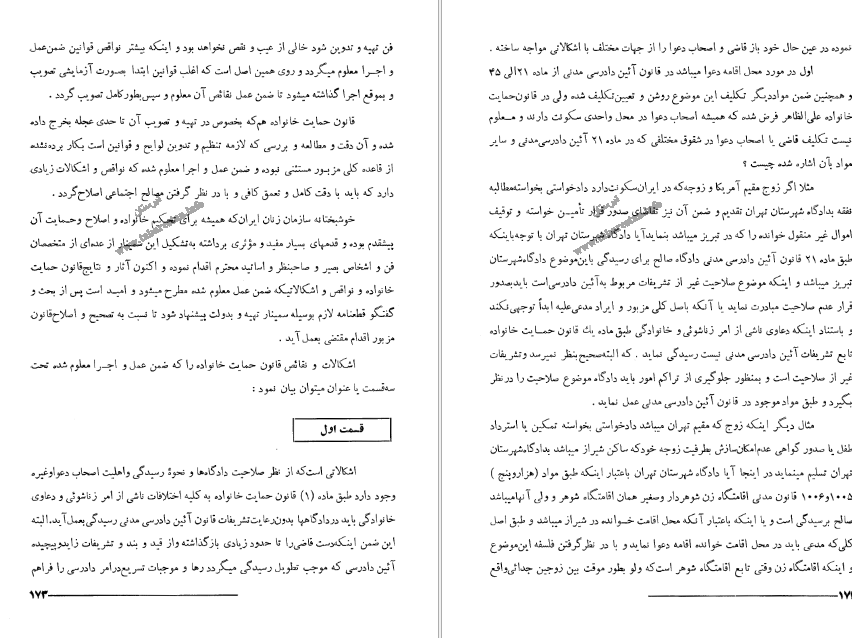 فن تهیه و تدوین شود خالی از عیب و نقص نخواهد بود و اینکه بیشتر نواقص قوانین ضمن‌عمل
و اجـرا معلوم میگردد و روی همین اصل است که اغلب قوانین ابتدا بصورت آزمایشی تصویب
و بموقع اجرا گذاشته میشود تا ضمن عمل نقائص آن معلوم و سپس‌بطورکامل تصویب گردد .
قانون حمایت خانواده هم‌که بخصوص در تهیه و تصویب آن تا حدی عجله بخرج داده
شده و آن دقت و مطالعه و بررسی که لازمه تنظیم و تدوین لوایح و قوانین است بکار برده‌نشده
از قاعده کلی مزبور مستثنی نبوده و ضمن عمل و اجرا معلوم شده که نواقص و اشکالات زیادی
دارد که باید با دقت کامل و تعمق کافی و با در نظر گرفتن مصالح اجتماعی اصلاح‌گردد .
خوشبختانه سازمان زنان ایران‌که همیشه برای تحکیم خانواده و اصلاح وحمایت آن
پیشقدم بوده و قدمهای بسیار مفید و مؤثری برداشته به‌تشکیل این سمینار از عده‌ای از متخصصان
فن و اشخاص بصیر و صاحبنظر و اساتید محترم اقدام نموده و اکنون آثار و نتایج‌قانون حمایت
خانواده و نواقص و اشکالاتیکه ضمن عمل معلوم شده مطرح میشود و امیـد است پس از بحث و
گفتگو قطعنامه لازم بوسیله سمینار تهیه و بدولت پیشنهاد شود تا نسبت به تصحیح و اصلاح‌قانون
مزبور اقدام مقتضی بعمل آید .
اشکالات و نقائص قانون حمایت خانواده را که ضمن عمل و اجـرا معلوم شده تحت
سه‌قسمت یا عنوان میتوان بیان نمود :
قسمت اول
اشکالاتی است‌که از نظر صلاحیت دادگاه‌ها و نحوهٔ رسیدگی واهلیت اصحاب دعواوغیره
وجود دارد طبق ماده (۱) قانون حمایت خانواده به کلیه اختلافات ناشی از امر زناشوئی و دعاوی
خانوادگی باید دردادگاهها بدون‌رعایت‌تشریفات قانون آئین دادرسی مدنی رسیدگی‌بعمل‌آید. البته
این ضمن اینکه‌دست قاضی‌را تا حدود زیادی بازگذاشته واز قید و بند و تشریفات زایدوپیچیده
آئین دادرسی که موجب تطویل رسیدگی میگردد رها و موجبات تسریع‌درامر دادرسی را فراهم
۱۷۳
نموده در عین حال خود باز قاضی و اصحاب دعوا را از جهات مختلف با اشکالاتی مواجه ساخته .
اول در مورد محل اقامه دعوا میباشد در قانون آئین دادرسی مدنی از ماده ۲۱الی ۴۵
و همچنین ضمن مواددیگر تکلیف این موضوع روشن و تعیین‌تکلیف شده ولی در قانون‌حمایت
خانواده علی‌الظاهر فرض شده که همیشه اصحاب دعوا در محل واحدی سکونت دارند و معلوم
نیست تکلیف قاضی یا اصحاب دعوا در شقوق مختلفی که در ماده ۲۱ آئین دادرسی‌مدنی و سایر
مواد بآن اشاره شده چیست ؟
مثلا اگر زوج مقیم آمریکا و زوجه‌که در ایران‌سکونت‌دارد دادخواستی بخواسته‌مطالبه
نفقه بدادگاه شهرستان تهران تقدیم و ضمن آن نیز تقاضای صدور قرار تأمیـن خواسته و توقیف
اموال غیر منقول خوانده را که در تبریز میباشد بنمایدآیا دادگاه شهرستان تهران با توجه‌باینکه
طبق ماده ۲۱ قانون آئین دادرسی مدنی دادگاه صالح برای رسیدگی باین‌موضوع دادگاه‌شهرستان
تبریز میباشد و اینکه موضوع صلاحیت غیر از تشریفات مربوط به‌آئین دادرسی‌است باید‌بصدور
قرار عدم صلاحیت مبادرت نماید یا آنکه باصل کلی مزبور و ایراد مدعی‌علیه ابداً توجهی‌نکند
و باستناد اینکه دعاوی ناشی از امر زناشوئی و خانوادگی طبق ماده یك قانون حمـایت خانواده
تابع تشریفات آئین دادرسی مدنی نیست رسیدگی نماید . که البته‌صحیح‌بنظر نمیرسد وتشریفات
غیر از صلاحیت است و بمنظور جلوگیری از تراکم امور باید دادگاه موضوع صلاحیت را درنظر
بگیرد و طبق مواد‌موجود در قانون آئین دادرسی مدنی عمل نماید .
مثال دیگر اینکه زوج که مقیم تهران میباشد دادخواستی بخواسته تمکین یا استرداد
طفل یا صدور گواهی عدم‌امکان‌سازش بطرفیت زوجه خودکه ساکن شیراز میباشد بدادگاه‌شهرستان
تهران تسلیم مینماید در اینجا آیا دادگاه شهرستان تهران باعتبار اینکه طبق مواد (هزاروپنج )
۱۰۰۵و۱۰۰۶ قانون مدنی اقامتگاه زن شوهردار وصغیر همان اقامتگاه شوهر و ولی آنهامیباشد
صالح برسیدگی است و یا اینکه باعتبار آنکه محل اقامت خـوانده در شیراز میباشد و طبق اصل
کلی‌که مدعی باید در محل اقامت خوانده اقامه دعوا نماید و با در نظر‌گرفتن فلسفه این‌موضوع
و اینکه اقامتگاه زن وقتی تابع اقامتگاه شوهر است‌که ولو بطور موقت بین زوجین جدائی‌واقع